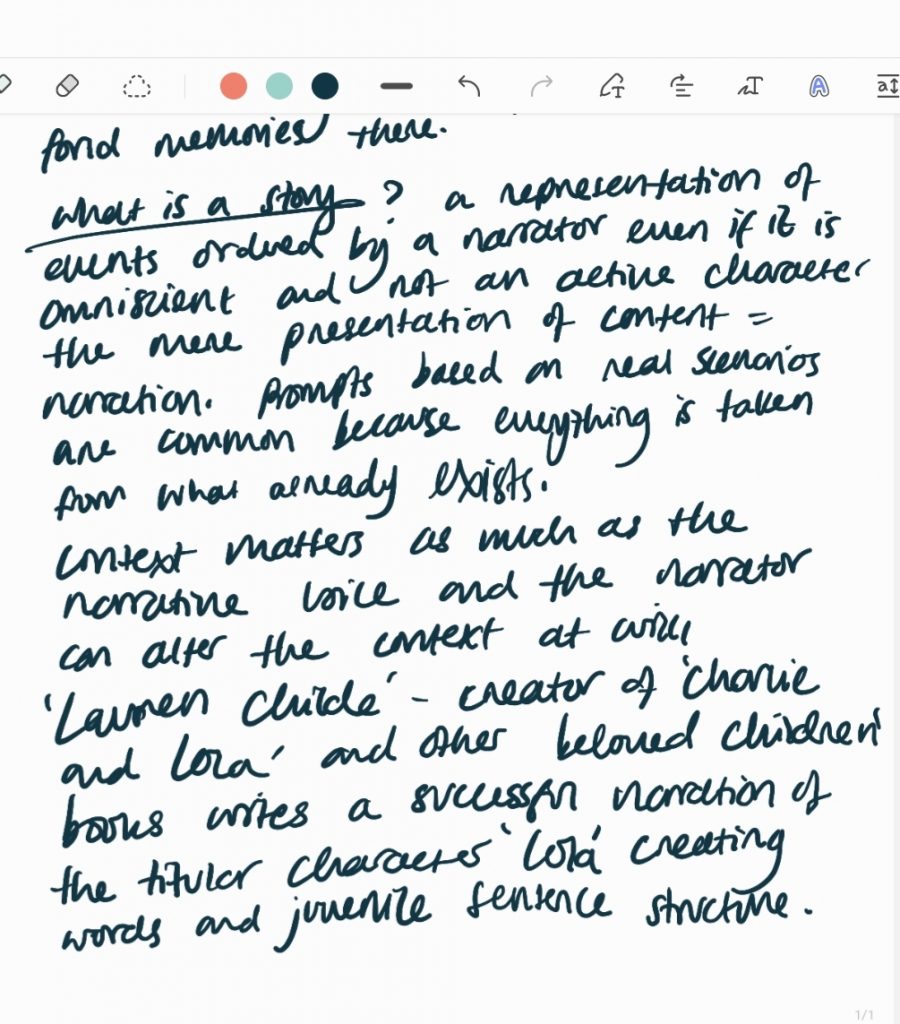 fond memories there.
what is a story? a representation of
events ordered by a narrator even if it is
omniscient and not an active character
the mere presentation of content =
narration. prompts based on real scenarios
are common because everything is taken
from what already exists.
context matters as much as the
narrative voice and the narrator
can alter the context at will
'Lauren Childe' - creator of 'Charlie
and Lola' and other beloved children'
books writes a successful narration of
the titular character 'Lola' creating
words and juvenile sentence structure.
1/1